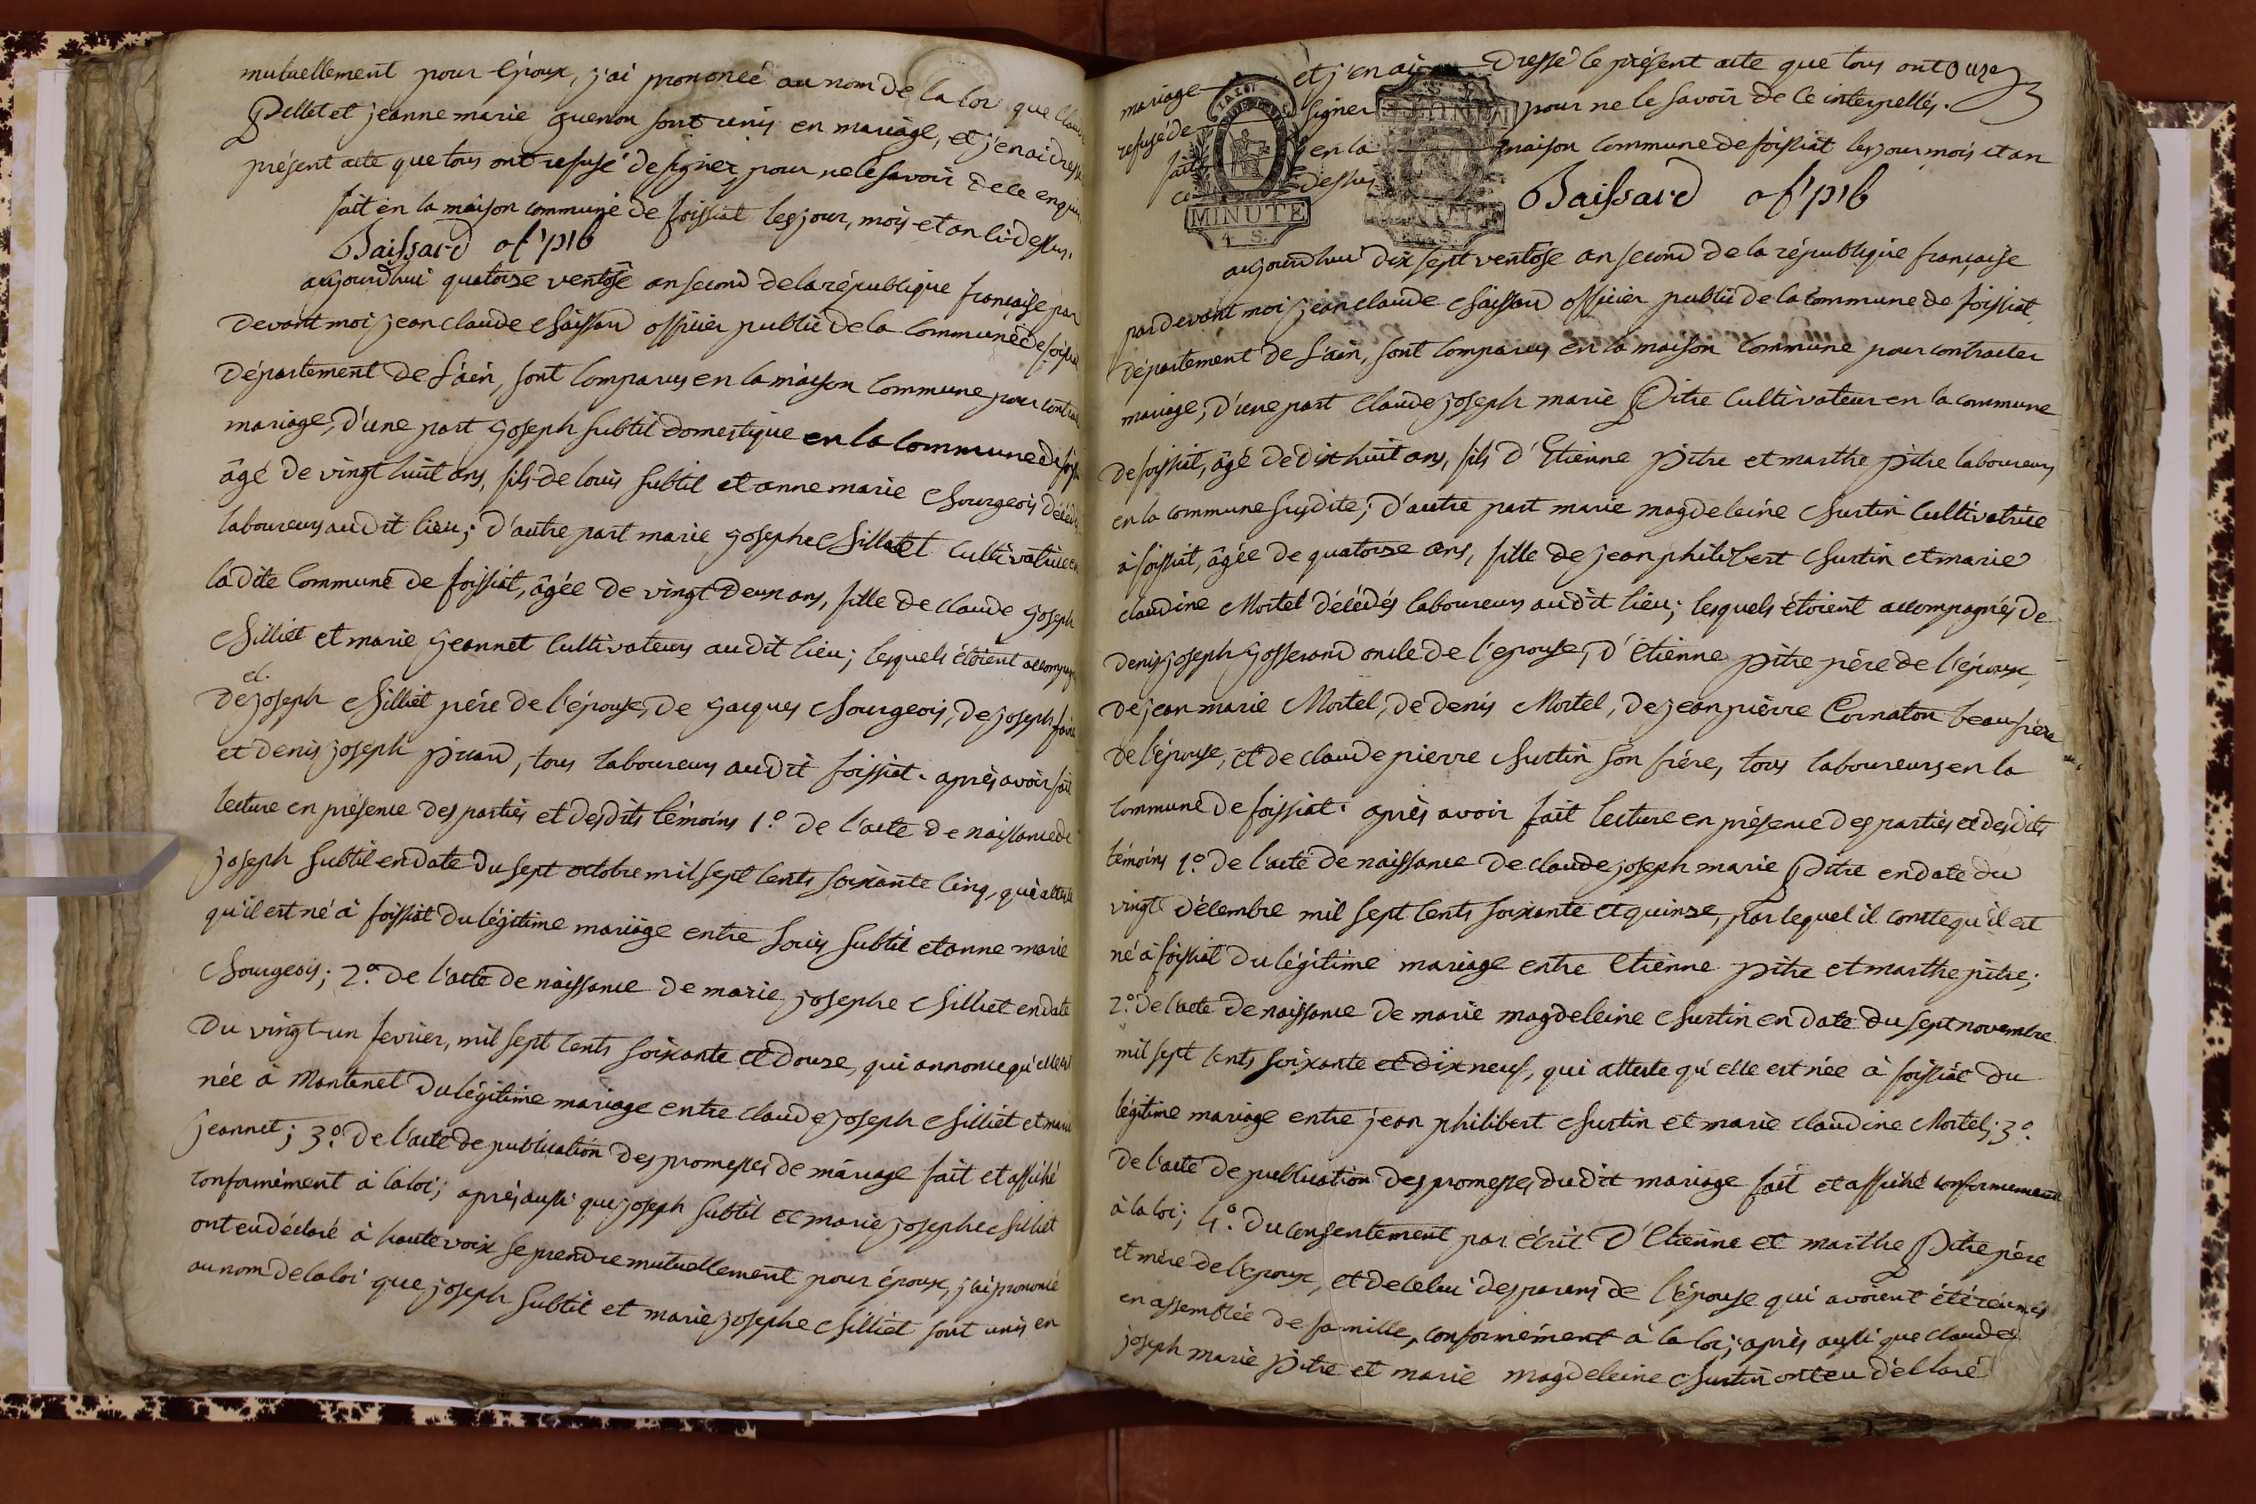 mutuellement pour époux, j'ai prononcé au nom de la loi que
Pellet et jeanne marie guenon sont unis en mariage, et j'en ai
présent acte que tous ont refusé de signer, pour ne le savoir de ce
fait en la maison commune de foissiat les jour, mois et an ci-dessus.
Baissard of. pb
aujourdhui quatorze ventôse an second de la république française par
devant moi jean claude Baissard officier public de la commune de
département de l'ain, sont comparus en la maison commune pour
mariage, d'une part joseph subtil domestique en la commune de
âgé de vingt huit ans, fils de louis subtil et anne marie Bourgeois
laboureurs audit lieu; d'autre part marie josephe Billiet cultivatrice en
ladite commune de foissiat, âgée de vingt deux ans, fille de claude joseph
Billiet et marie jeannet cultivateurs audit lieu; lesquels étoient
de cl. joseph Billiet père de l'épouse, de jacques Bourgeois, de joseph
et denis joseph, tous laboureurs audit foissiat. après avoir fait
lecture en présence des parties et desdits témoins 1.º de l'acte de naissance de
joseph subtil en date du sept octobre mil sept cents soixante cinq, qui atteste
qu'il est né à foissiat du légitime mariage entre louis subtil et anne marie
Bourgeois; 2.º de l'acte de naissance de marie josephe Billiet en date
du vingt-un fevrier, mil sept cents soixante et douze, qui annonce qu'elle est
née à Mantenel du légitime mariage entre claude joseph Billiet et marie
jeannet; 3.º de l'acte de publication des promesses de mariage fait et affiché
conformément à la loi; après aussi que joseph subtil et marie josephe Billiet
ont eu déclaré à haute voix se prendre mutuellement pour époux, j'ai prononcé
au nom de la loi que joseph subtil et marie josephe Billiet sont unis en
mariage et j'en ai dressé le présent acte que tous ont onze
refusé de signer pour ne le savoir de ce interpellés.
fait en la maison commune de foissiat les jour mois et an
ci dessus Baissard of. pb
LA LOI
MINUTE
4. S.
MINUTE
aujourdhui dix sept ventôse an second de la république française
par devant moi jean claude Baissard officier public de la commune de foissiat,
département de l'ain, sont comparus en la maison commune pour contracter
mariage, d'une part claude joseph marie Pitre cultivateur en la commune
de foissiat, âgé de dix huit ans, fils d'Etienne pitre et marthe pitre laboureurs
en la commune susdite; d'autre part marie magdeleine Burtin cultivatrice
à foissiat, âgée de quatorze ans, fille de jean philibert Burtin et marie
claudine Mortel décédés laboureurs audit lieu; lesquels étoient accompagnés de
denis joseph josserand oncle de l'épouse, d'Etienne pitre père de l'époux,
de jean marie Mortel, de denis Mortel, de jean pierre Cornaton beau frère
de l'épouse, et de claude pierre Burtin son frère, tous laboureurs en la
commune de foissiat. après avoir fait lecture en présence des parties et desdits
témoins 1.º de l'acte de naissance de claude joseph marie Pitre en date du
vingt décembre mil sept cents soixante et quinze, par lequel il conste qu'il est
né à foissiat du légitime mariage entre Etienne pitre et marthe pitre;
2.º de l'acte de naissance de marie magdeleine Burtin en date du sept novembre
mil sept cents soixante et dix neuf, qui atteste qu'elle est née à foissiat du
légitime mariage entre jean philibert Burtin et marie claudine Mortel; 3.º
de l'acte de publication des promesses dudit mariage fait et affiché conformément
à la loi; 4.º du consentement par écrit d'Etienne et marthe Pitre père
et mère de l'époux, et de celui des parens de l'épouse qui avoient été réunis
en assemblée de famille, conformément à la loi; après aussi que claude
joseph marie Pitre et marie magdeleine Burtin ont eu déclaré